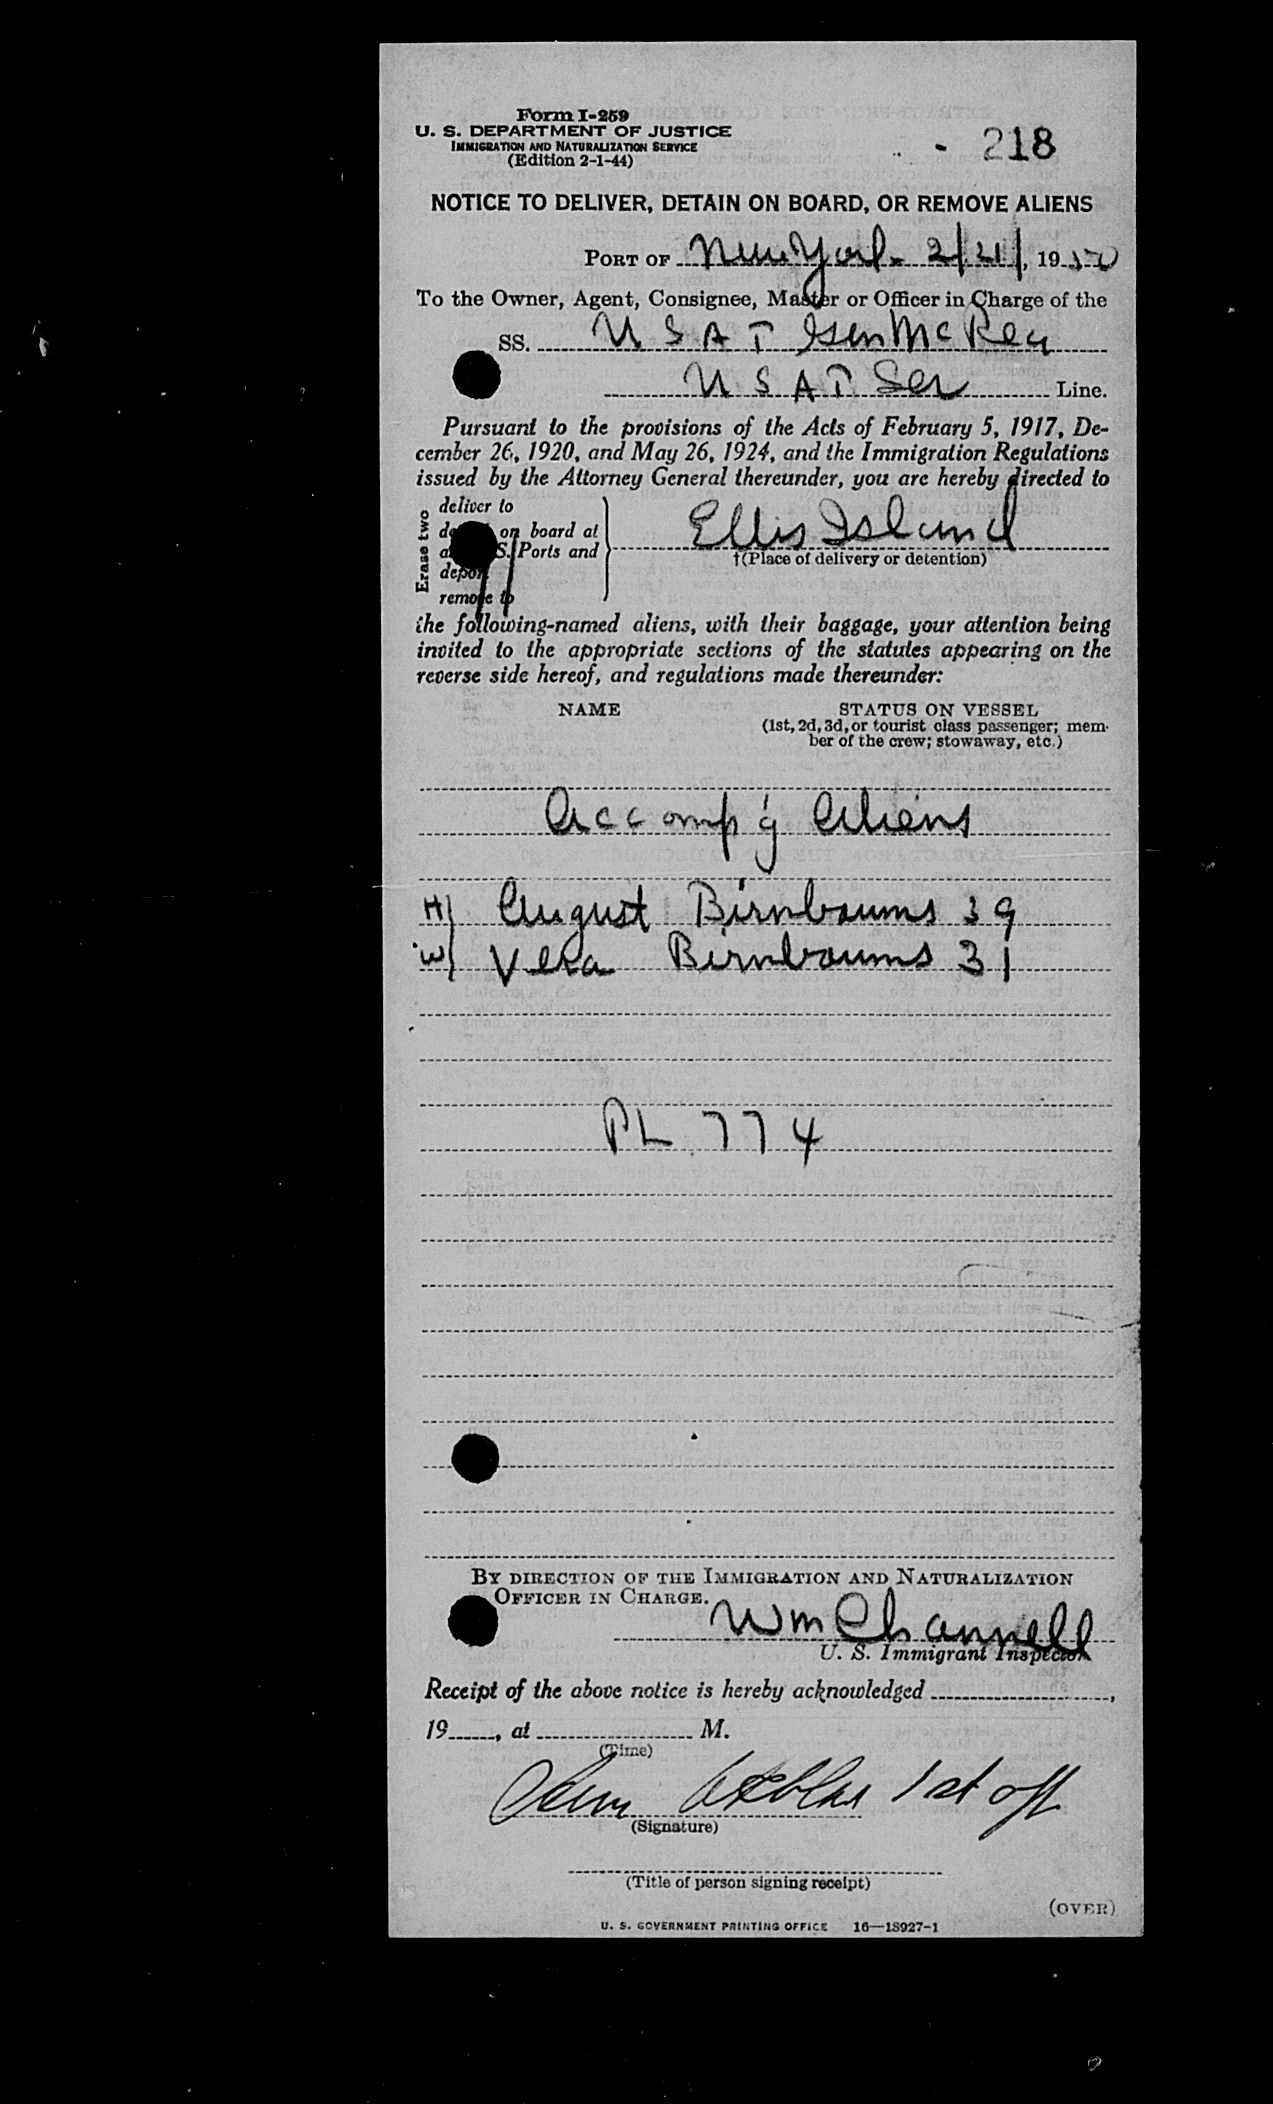 Form I-259
U. S. DEPARTMENT OF JUSTICE
IMMIGRATION AND NATURALIZATION SERVICE
(Edition 2-1-44)
- 218
NOTICE TO DELIVER, DETAIN ON BOARD, OR REMOVE ALIENS
PORT OF New York 2/21/, 1950
To the Owner, Agent, Consignee, Master or Officer in Charge of the
SS. U S A T Gen McRea
U S A T Ser Line.
Pursuant to the provisions of the Acts of February 5, 1917, De-
cember 26, 1920, and May 26, 1924, and the Immigration Regulations
issued by the Attorney General thereunder, you are hereby directed to
Erase two
deliver to
on board at
S. Ports and
remove to
Ellis Island
†(Place of delivery or detention)
the following-named aliens, with their baggage, your attention being
invited to the appropriate sections of the statutes appearing on the
reverse side hereof, and regulations made thereunder:
NAME STATUS ON VESSEL
(1st, 2d, 3d, or tourist class passenger; mem-
ber of the crew; stowaway, etc.)
Accomp'g Aliens
H) August Birnbaums 39
W) Vera Birnbaums 31
PL 774
BY DIRECTION OF THE IMMIGRATION AND NATURALIZATION
OFFICER IN CHARGE.
Wm Channell
U. S. Immigrant Inspector.
Receipt of the above notice is hereby acknowledged ,
19 , at M.
(Time)
1st off
(Signature)
(Title of person signing receipt)
(OVER)
U. S. GOVERNMENT PRINTING OFFICE 16—18927-1